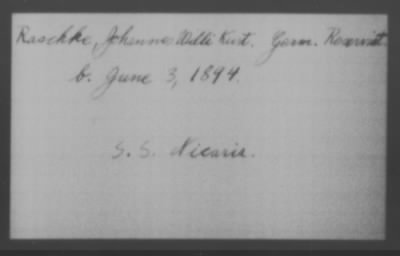 Raschke, Johannes Willi Kurt. Germ. Reservist
b. June 3, 1894.
S. S. Nicaria.